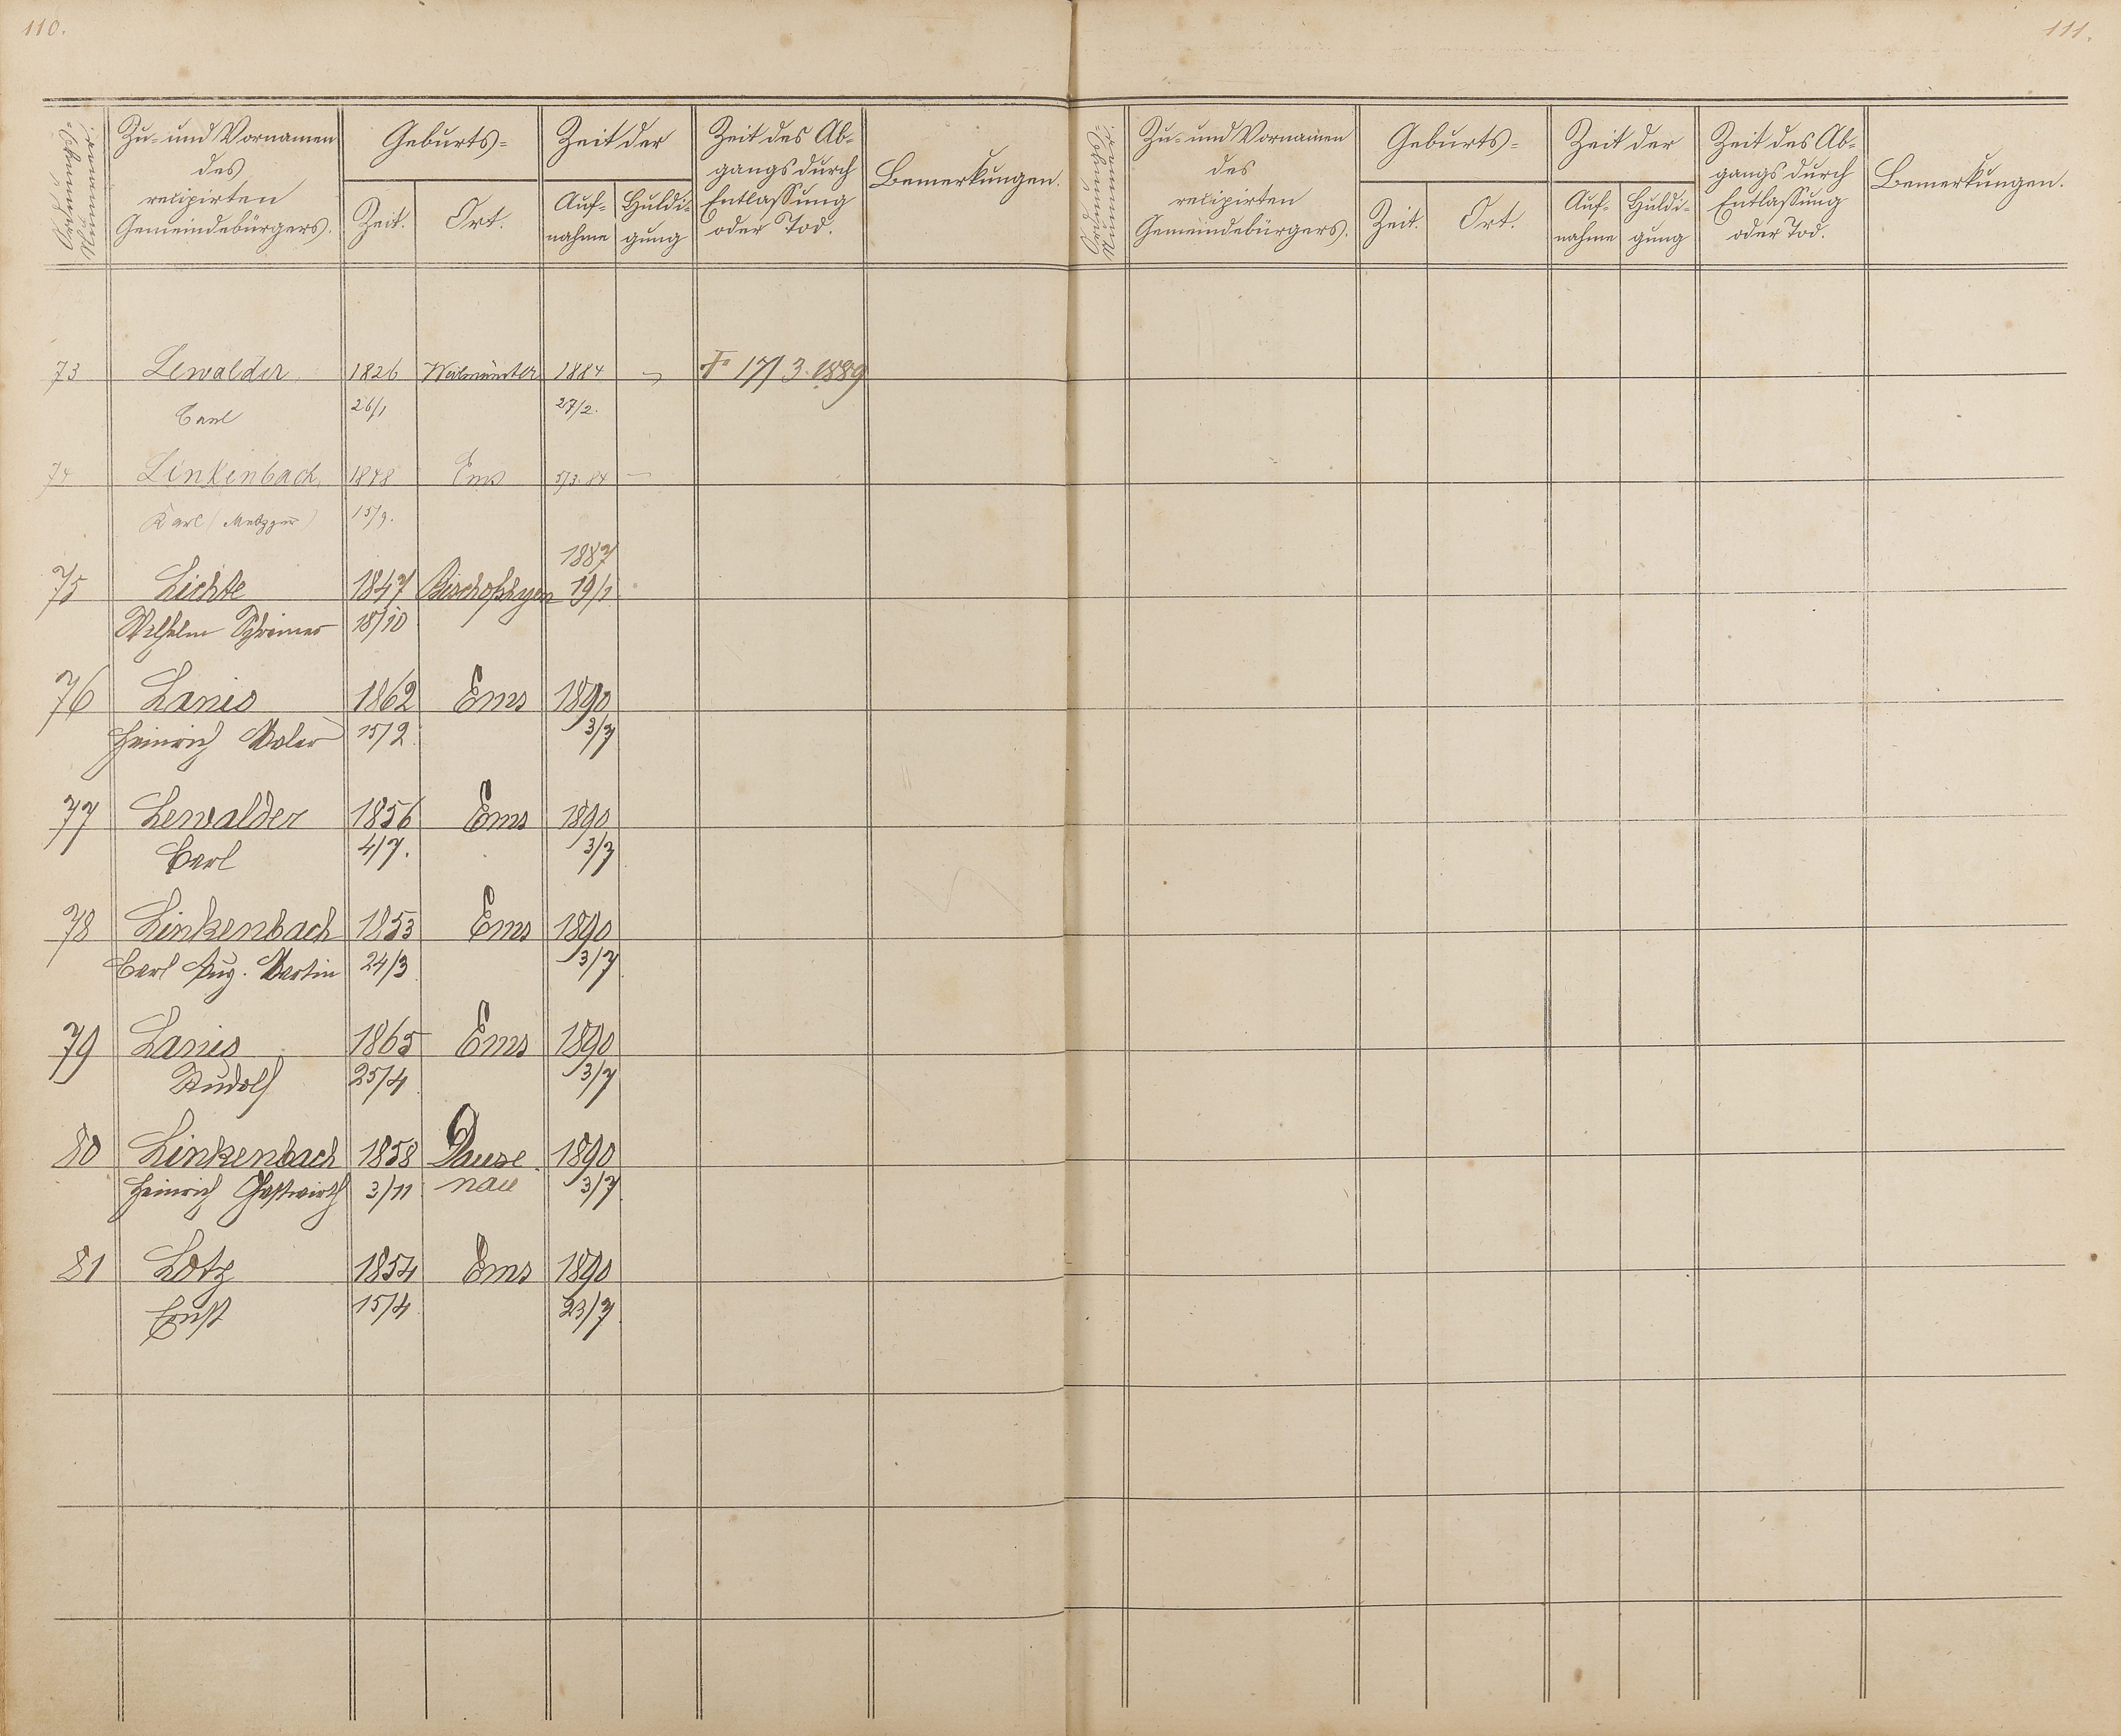 110.
Ordnungs-
Nummer.
Zu- und Vornamen
des
recipirten
Gemeindebürgers.
Geburts-
Zeit.
Ort.
Zeit der
Auf-
nahme
Huldi-
gung
Zeit des Ab-
gangs durch
Entlassung
oder Tod.
Bemerkungen.
73 Lewalder 1826 Weilmünster 1884 — † 17/3. 1889
Carl 26/1 27/2.
74 Linkenbach 1848 Ems 5/3. 84 —
Karl (Metzger) 15/9.
1887
75 Lichte 1847 19/1
Wilhelm Schreiner 18/10
76 Lanio 1862 Ems 1890
Heinrich Maler 15/2 3/7
77 Lewalder 1856 Ems 1890
Carl 4/7. 3/7
78 Linkenbach 1853 Ems 1890
Carl Aug. Martin 24/3 3/7
79 Lanio 1865 Ems 1890
Rudolf 25/4 3/7
80 Linkenbach 1858 Dause 1890
Heinrich Gastwirth 3/11 nau 3/7
81 Lotz 1854 Ems 1890
Ernst 15/4 23/7
111.
Ordnungs-
Nummer.
Zu- und Vornamen
des
recipirten
Gemeindebürgers.
Geburts-
Zeit.
Ort.
Zeit der
Auf-
nahme
Huldi-
gung
Zeit des Ab-
gangs durch
Entlassung
oder Tod.
Bemerkungen.